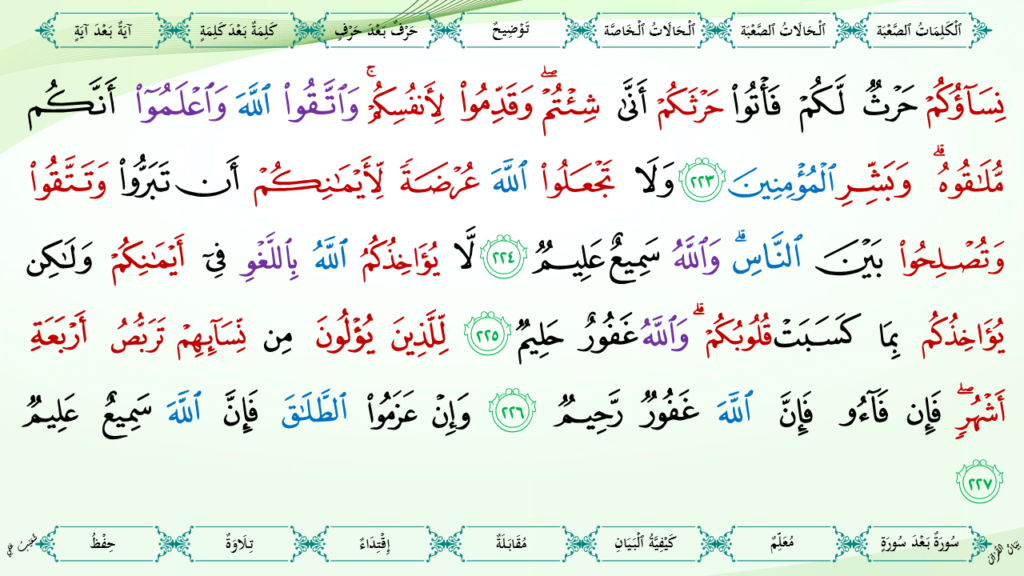 اَلْكَلِمَاتُ الصَّعْبَة اَلْحَالَاتُ الصَّعْبَة اَلْحَالَاتُ الْخَاصَّة تَوْضِيحٌ حَرْفٌ بَعْدَ حَرْفٍ كَلِمَةٌ بَعْدَ كَلِمَةٍ آيَةٌ بَعْدَ آيَةٍ
نِسَآؤُكُمْ حَرْثٌ لَّكُمْ فَأْتُوا۟ حَرْثَكُمْ أَنَّىٰ شِئْتُمْ ۖ وَقَدِّمُوا۟ لِأَنفُسِكُمْ ۚ وَٱتَّقُوا۟ ٱللَّهَ وَٱعْلَمُوٓا۟ أَنَّكُم
مُّلَـٰقُوهُ ۗ وَبَشِّرِ ٱلْمُؤْمِنِينَ ٢٢٣ وَلَا تَجْعَلُوا۟ ٱللَّهَ عُرْضَةً لِّأَيْمَـٰنِكُمْ أَن تَبَرُّوا۟ وَتَتَّقُوا۟
وَتُصْلِحُوا۟ بَيْنَ ٱلنَّاسِ ۗ وَٱللَّهُ سَمِيعٌ عَلِيمٌ ٢٢٤ لَّا يُؤَاخِذُكُمُ ٱللَّهُ بِٱللَّغْوِ فِىٓ أَيْمَـٰنِكُمْ وَلَـٰكِن
يُؤَاخِذُكُم بِمَا كَسَبَتْ قُلُوبُكُمْ ۗ وَٱللَّهُ غَفُورٌ حَلِيمٌ ٢٢٥ لِّلَّذِينَ يُؤْلُونَ مِن نِّسَآئِهِمْ تَرَبُّصُ أَرْبَعَةِ
أَشْهُرٍ ۖ فَإِن فَآءُو فَإِنَّ ٱللَّهَ غَفُورٌ رَّحِيمٌ ٢٢٦ وَإِنْ عَزَمُوا۟ ٱلطَّلَـٰقَ فَإِنَّ ٱللَّهَ سَمِيعٌ عَلِيمٌ
٢٢٧
سُورَةٌ بَعْدَ سُورَةٍ مُعَلِّمٌ كَيْفِيَّةُ الْبَيَانِ مُقَابَلَةٌ إِقْتِدَاءٌ تِلَاوَةٌ حِفْظٌ
بَيَانُ الْقُرْآنِ